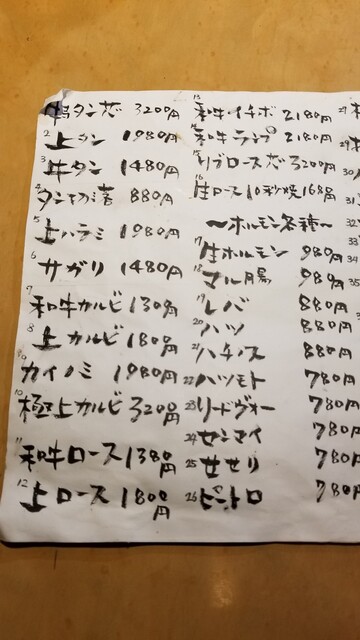 特タン芯 3200円
2 上タン 1980円
3 牛タン 1480円
4 タン切落 880円
5 上ハラミ 1980円
6 サガリ 1480円
7 和牛カルビ 1380円
8 上カルビ 1800円
9 カイノミ 1980円
10 極上カルビ 3200円
11 和牛ロース 1380円
12 上ロース 1800円
13 和牛イチボ 2180円
14 和牛ランプ 2180円
15 リブロース芯 3200円
16 生ロース10秒焼 1680円
〜ホルモン各種〜
17 生ホルモン 980円
18 マル腸 980円
19 レバー 880円
20 ハツ 880円
21 ハチノス 880円
22 ハツモト 780円
23 リードヴォー 780円
24 センマイ 780円
25 せせり 780円
26 ピートロ 780円
27
29
30
31
32
33
34
35